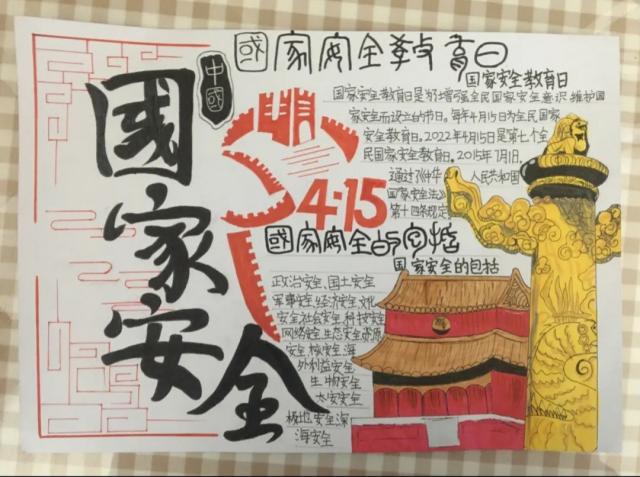 國家安全
中國
國家安全教育日
國家安全教育日
国家安全教育日是为了增强全民国家安全意识,维护国
家安全而设立的节日。每年4月15日为全民国家
安全教育日。2022年4月15日是第七个全
民国家安全教育日。2015年7月1日,
通过了《中华 人民共和国
国家安全法》
第十四条规定
4·15
國家安全的包括
国家安全的包括
政治安全、国土安全
军事安全,经济安全,文化
安全,社会安全,科技安全
网络安全,生态安全,资源
安全,核安全,海
外利益安全
生物安全
太空安全
极地安全,深
海安全